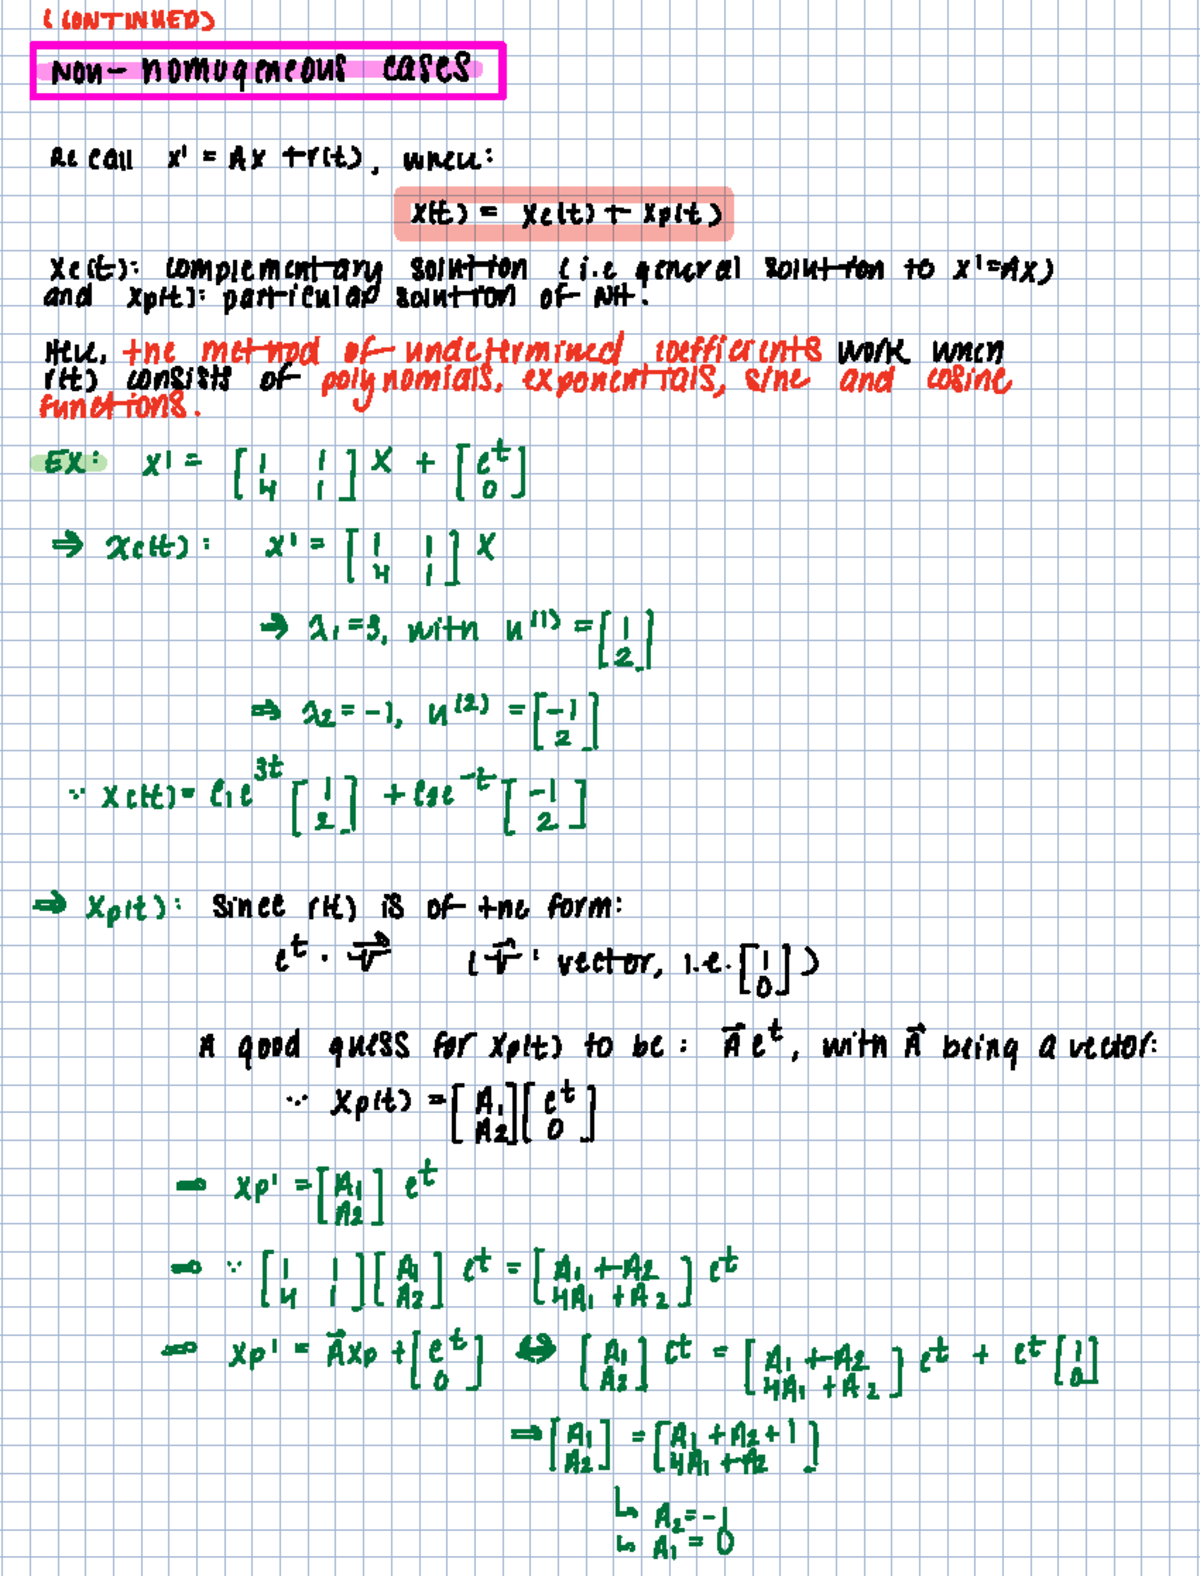 (CONTINUED)
Non-homogeneous cases
Recall x' = Ax + r(t), where:
x(t) = xc(t) + xp(t)
xc(t): complementary solution (i.e general solution to x'=Ax)
and xp(t): particular solution of NH.
Here, the method of undetermined coefficients work when
r(t) consists of polynomials, exponentials, sine and cosine
functions.
EX: x' = [1 1; 4 1] x + [e^t; 0]
⇒ xc(t): x' = [1 1; 4 1] x
⇒ λ₁=3, with u^(1) = [1; 2]
⇒ λ₂=-1, u^(2) = [-1; 2]
∵ xc(t) = c₁e^3t [1; 2] + c₂e^-t [-1; 2]
⇒ xp(t): Since r(t) is of the form:
e^t · v⃗ (v⃗: vector, i.e. [1; 0])
A good guess for xp(t) to be: A⃗e^t, with A⃗ being a vector:
∵ xp(t) = [A₁; A₂][e^t; 0]
⇒ xp' = [A₁; A₂] e^t
⇒ ∵ [1 1; 4 1][A₁; A₂] e^t = [A₁+A₂; 4A₁+A₂] e^t
⇒ xp' = A⃗xp + [e^t; 0] ⇔ [A₁; A₂] e^t = [A₁+A₂; 4A₁+A₂] e^t + e^t [1; 0]
⇒ [A₁; A₂] = [A₁+A₂+1; 4A₁+A₂]
↳ A₂=-1
↳ A₁=0